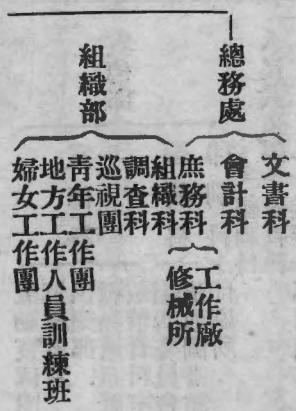 總務處
文書科
會計科
庶務科
工作廠
修械所
組織部
組織科
調查科
巡視團
靑年工作團
地方工作人員訓練班
婦女工作團